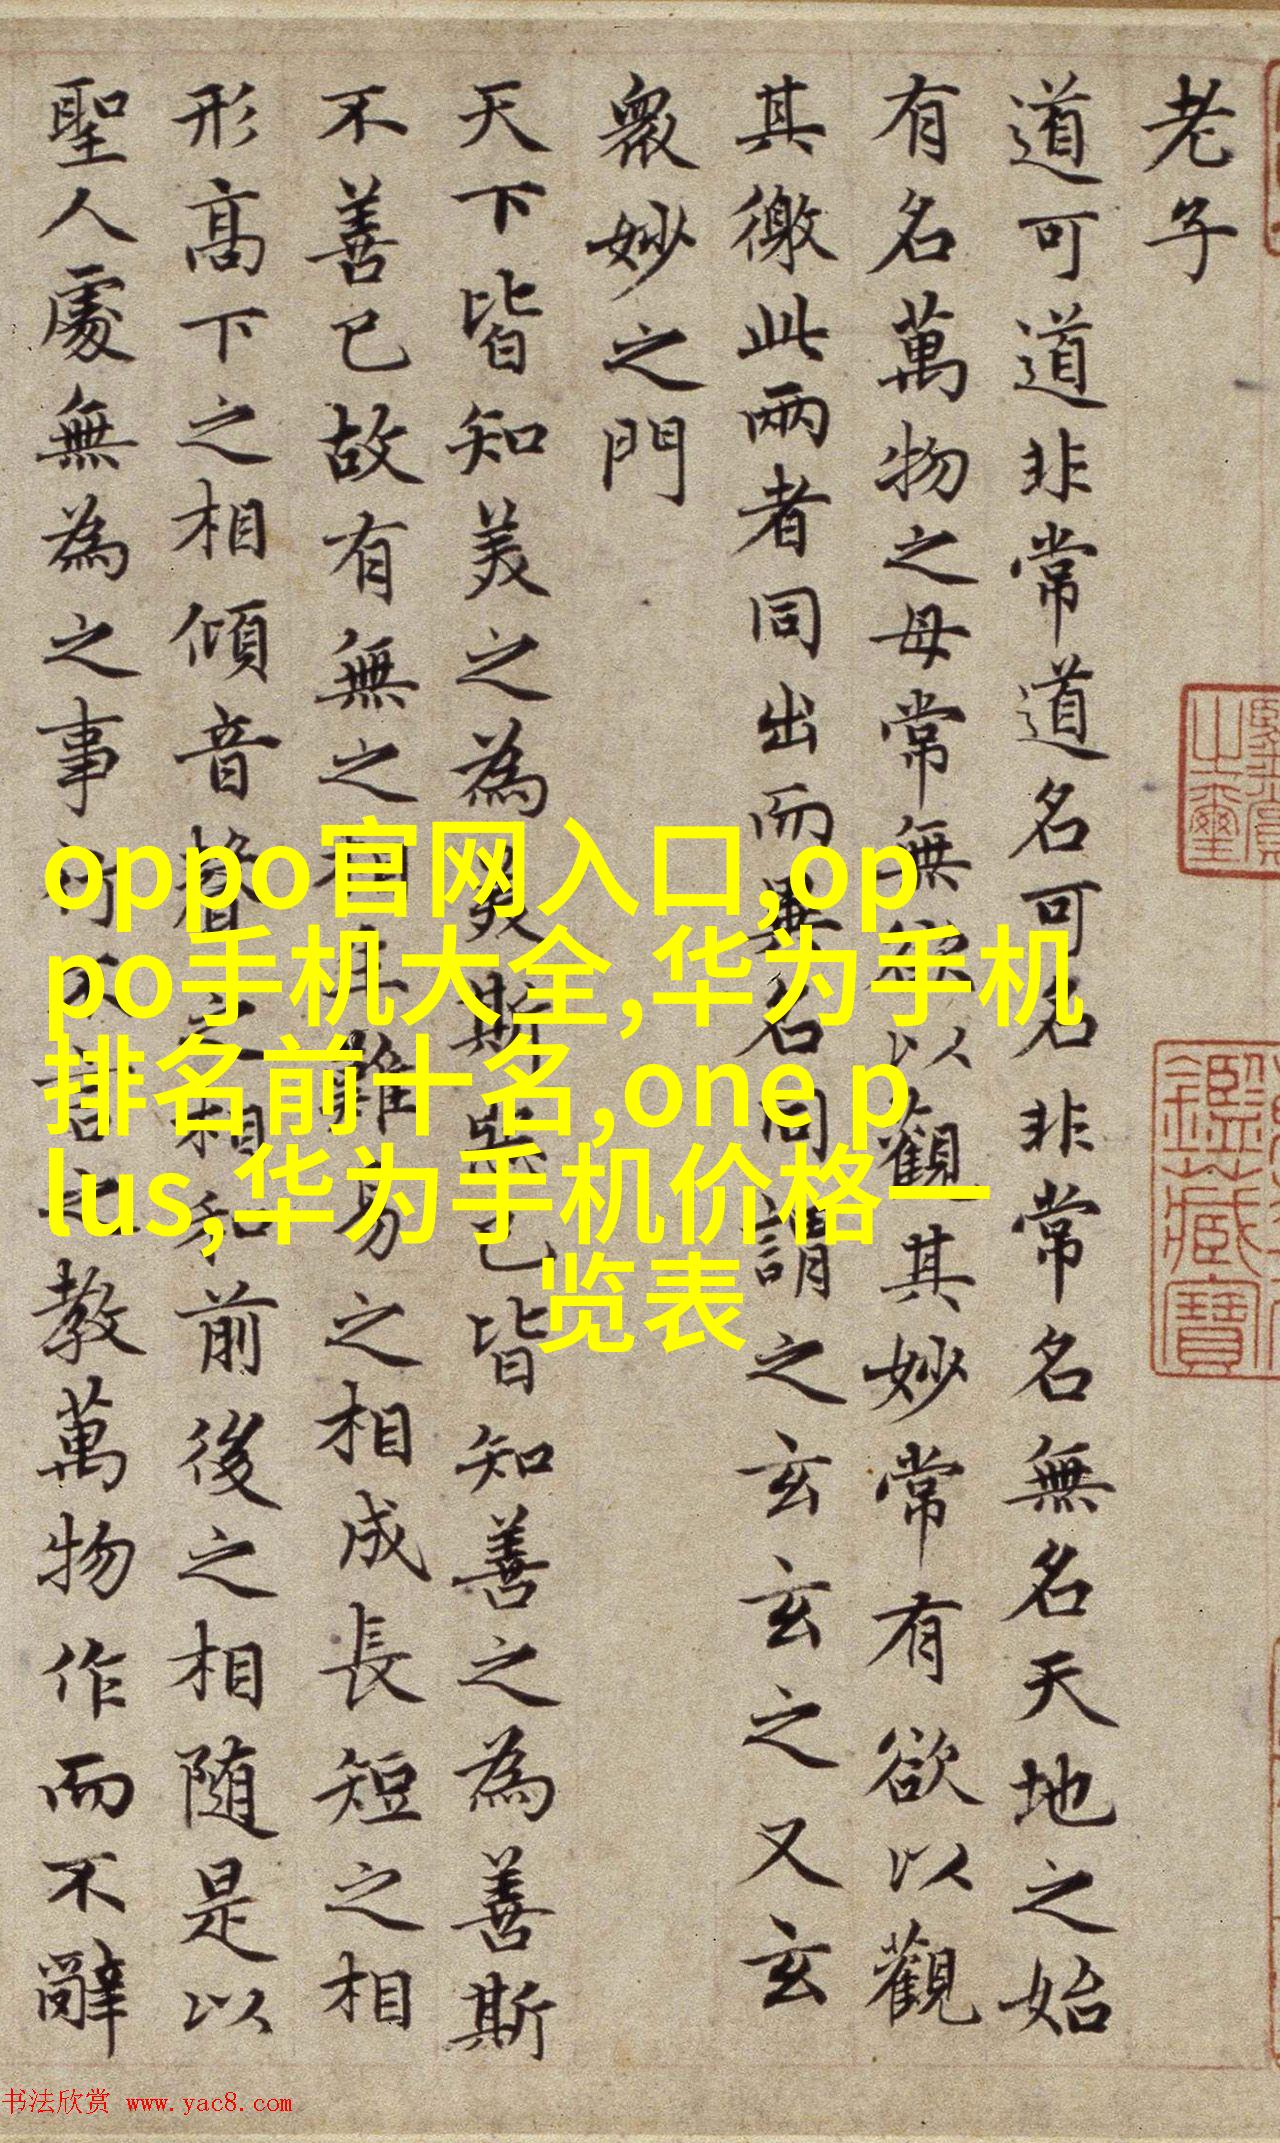 老子
道可道非常道名可名非常名無名天地之始
有名萬物之母常無欲以觀其妙常有欲以觀
其徼此兩者同出而異名同謂之玄玄之又玄
衆妙之門
天下皆知美之為美斯惡已皆知善之為善斯
不善已故有無之相生難易之相成長短之相
形高下之相傾音聲之相和前後之相随是以
聖人處無為之事行不言之教萬物作而不辭
之璽
鑑藏寶
oppo官网入口,op
po手机大全,华为手机
排名前十名,one p
lus,华为手机价格一
览表
书法欣赏 www.yac8.com